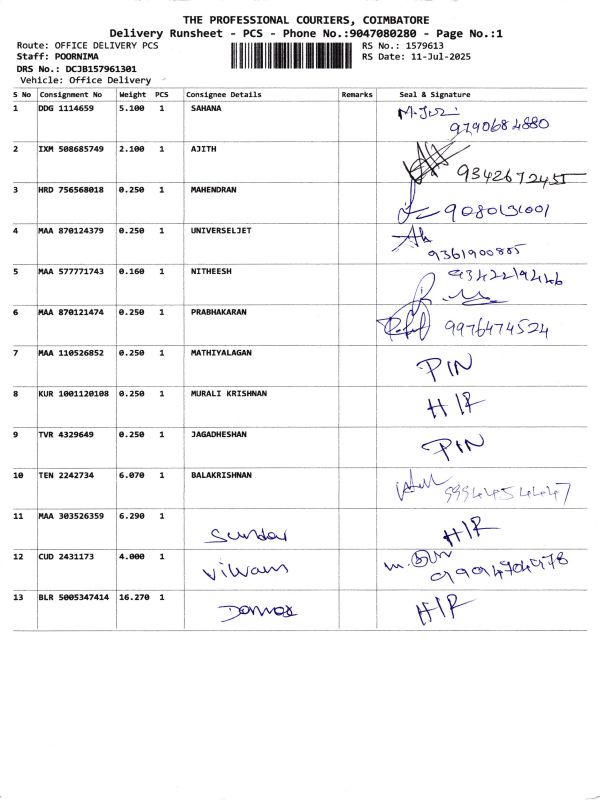 THE PROFESSIONAL COURIERS, COIMBATORE
Delivery Runsheet - PCS - Phone No.:9047080280 - Page No.:1
Route: OFFICE DELIVERY PCS RS No.: 1579613
Staff: POORNIMA RS Date: 11-Jul-2025
DRS No.: DCJB157961301
Vehicle: Office Delivery
S No Consignment No Weight PCS Consignee Details Remarks Seal & Signature
1 DDG 1114659 5.100 1 SAHANA
9790684880
2 IXM 508685749 2.100 1 AJITH
9342672455
3 HRD 756568018 0.250 1 MAHENDRAN
9080131001
4 MAA 870124379 0.250 1 UNIVERSELJET
9361900885
5 MAA 577771743 0.160 1 NITHEESH
6 MAA 870121474 0.250 1 PRABHAKARAN
9976474524
7 MAA 110526852 0.250 1 MATHIYALAGAN PIN
8 KUR 1001120108 0.250 1 MURALI KRISHNAN H/R
9 TVR 4329649 0.250 1 JAGADHESHAN PIN
10 TEN 2242734 6.070 1 BALAKRISHNAN
9994454447
11 MAA 303526359 6.290 1 Sundar H/R
12 CUD 2431173 4.000 1
13 BLR 5005347414 16.270 1 H/R